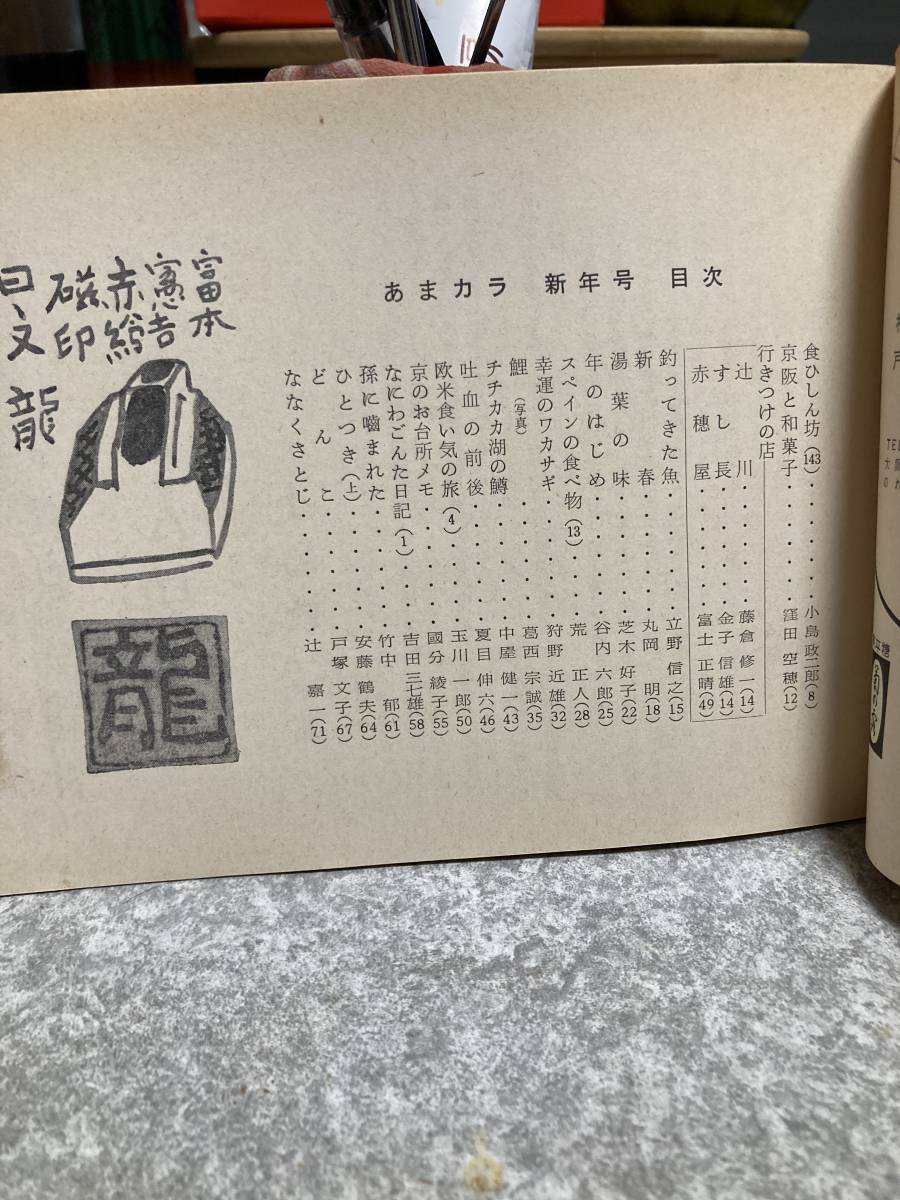 あまカラ 新年号 目次
食ひしん坊(143)・・・・・小島政二郎(8)
京阪と和菓子・・・・・窪田空穂(12)
行きつけの店
辻川・・・・・藤倉修一(14)
すし長・・・・・金子信雄(14)
赤穂屋・・・・・富士正晴(49)
釣ってきた魚・・・・・立野信之(15)
新春・・・・・丸岡明(18)
湯葉の味・・・・・芝木好子(22)
年のはじめ・・・・・谷内六郎(25)
スペインの食べ物(13)・・・・・荒正人(28)
幸運のワカサギ・・・・・狩野近雄(32)
鯉(写真)・・・・・葛西宗誠(35)
チチカカ湖の鱒・・・・・中屋健一(43)
吐血の前後・・・・・夏目伸六(46)
欧米食い気の旅(4)・・・・・玉川一郎(50)
京のお台所メモ・・・・・國分綾子(55)
なにわごんた日記(1)・・・・・吉田三七雄(58)
孫に嚙まれた・・・・・竹中郁(61)
ひとつき(上)・・・・・安藤鶴夫(64)
どんこ・・・・・戸塚文子(67)
ななくさとじ・・・・・辻嘉一(71)
富本
憲吉
赤絵
磁印
曰、文
龍
龍
戸
TEL
大阪